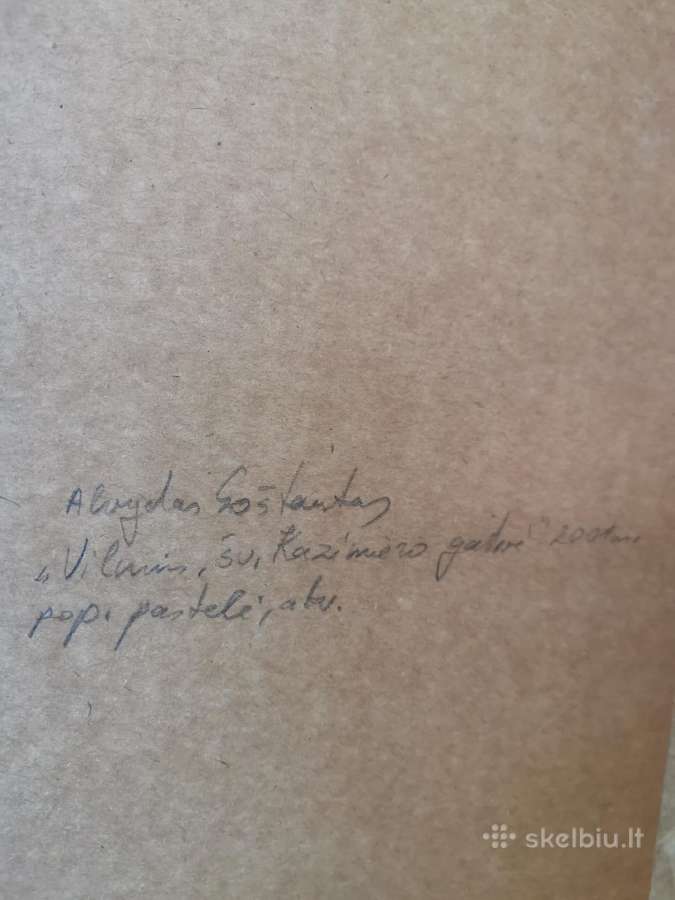 Alvydas Goštautas
„Vilnius, šv. Kazimiero gatvė" 2001m.
pop. pastelė, akv.
skelbiu.lt